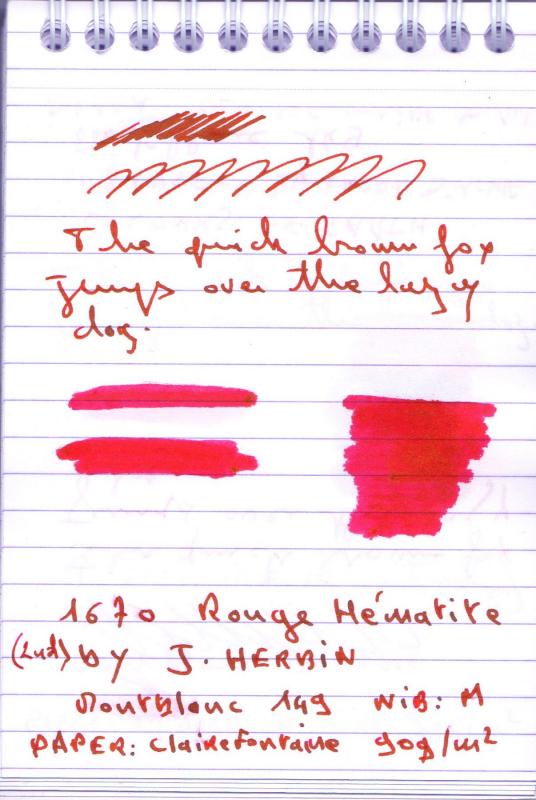 The quick brown fox
jumps over the lazy
dog.
1670 Rouge Hématite
(2nd) by J. HERBIN
Montblanc 149 NiB: M
PAPER: Clairefontaine 90g/m²